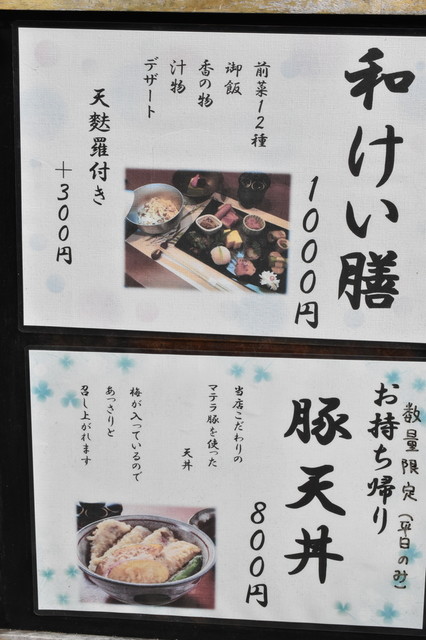 和けい膳
1000円
前菜12種
御飯
香の物
汁物
デザート
天麩羅付き
+300円
数量限定(平日のみ)
お持ち帰り
豚天丼
800円
当店こだわりの
マテラ豚を使った
天丼
梅が入っているので
あっさりと
召し上がれます